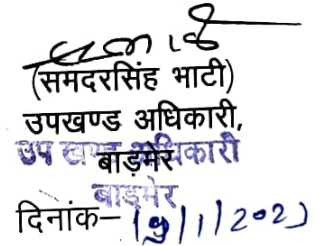 (समदरसिंह भाटी)
उपखण्ड अधिकारी,
बाड़मेर
उप खण्ड अधिकारी
बाड़मेर
दिनांक–